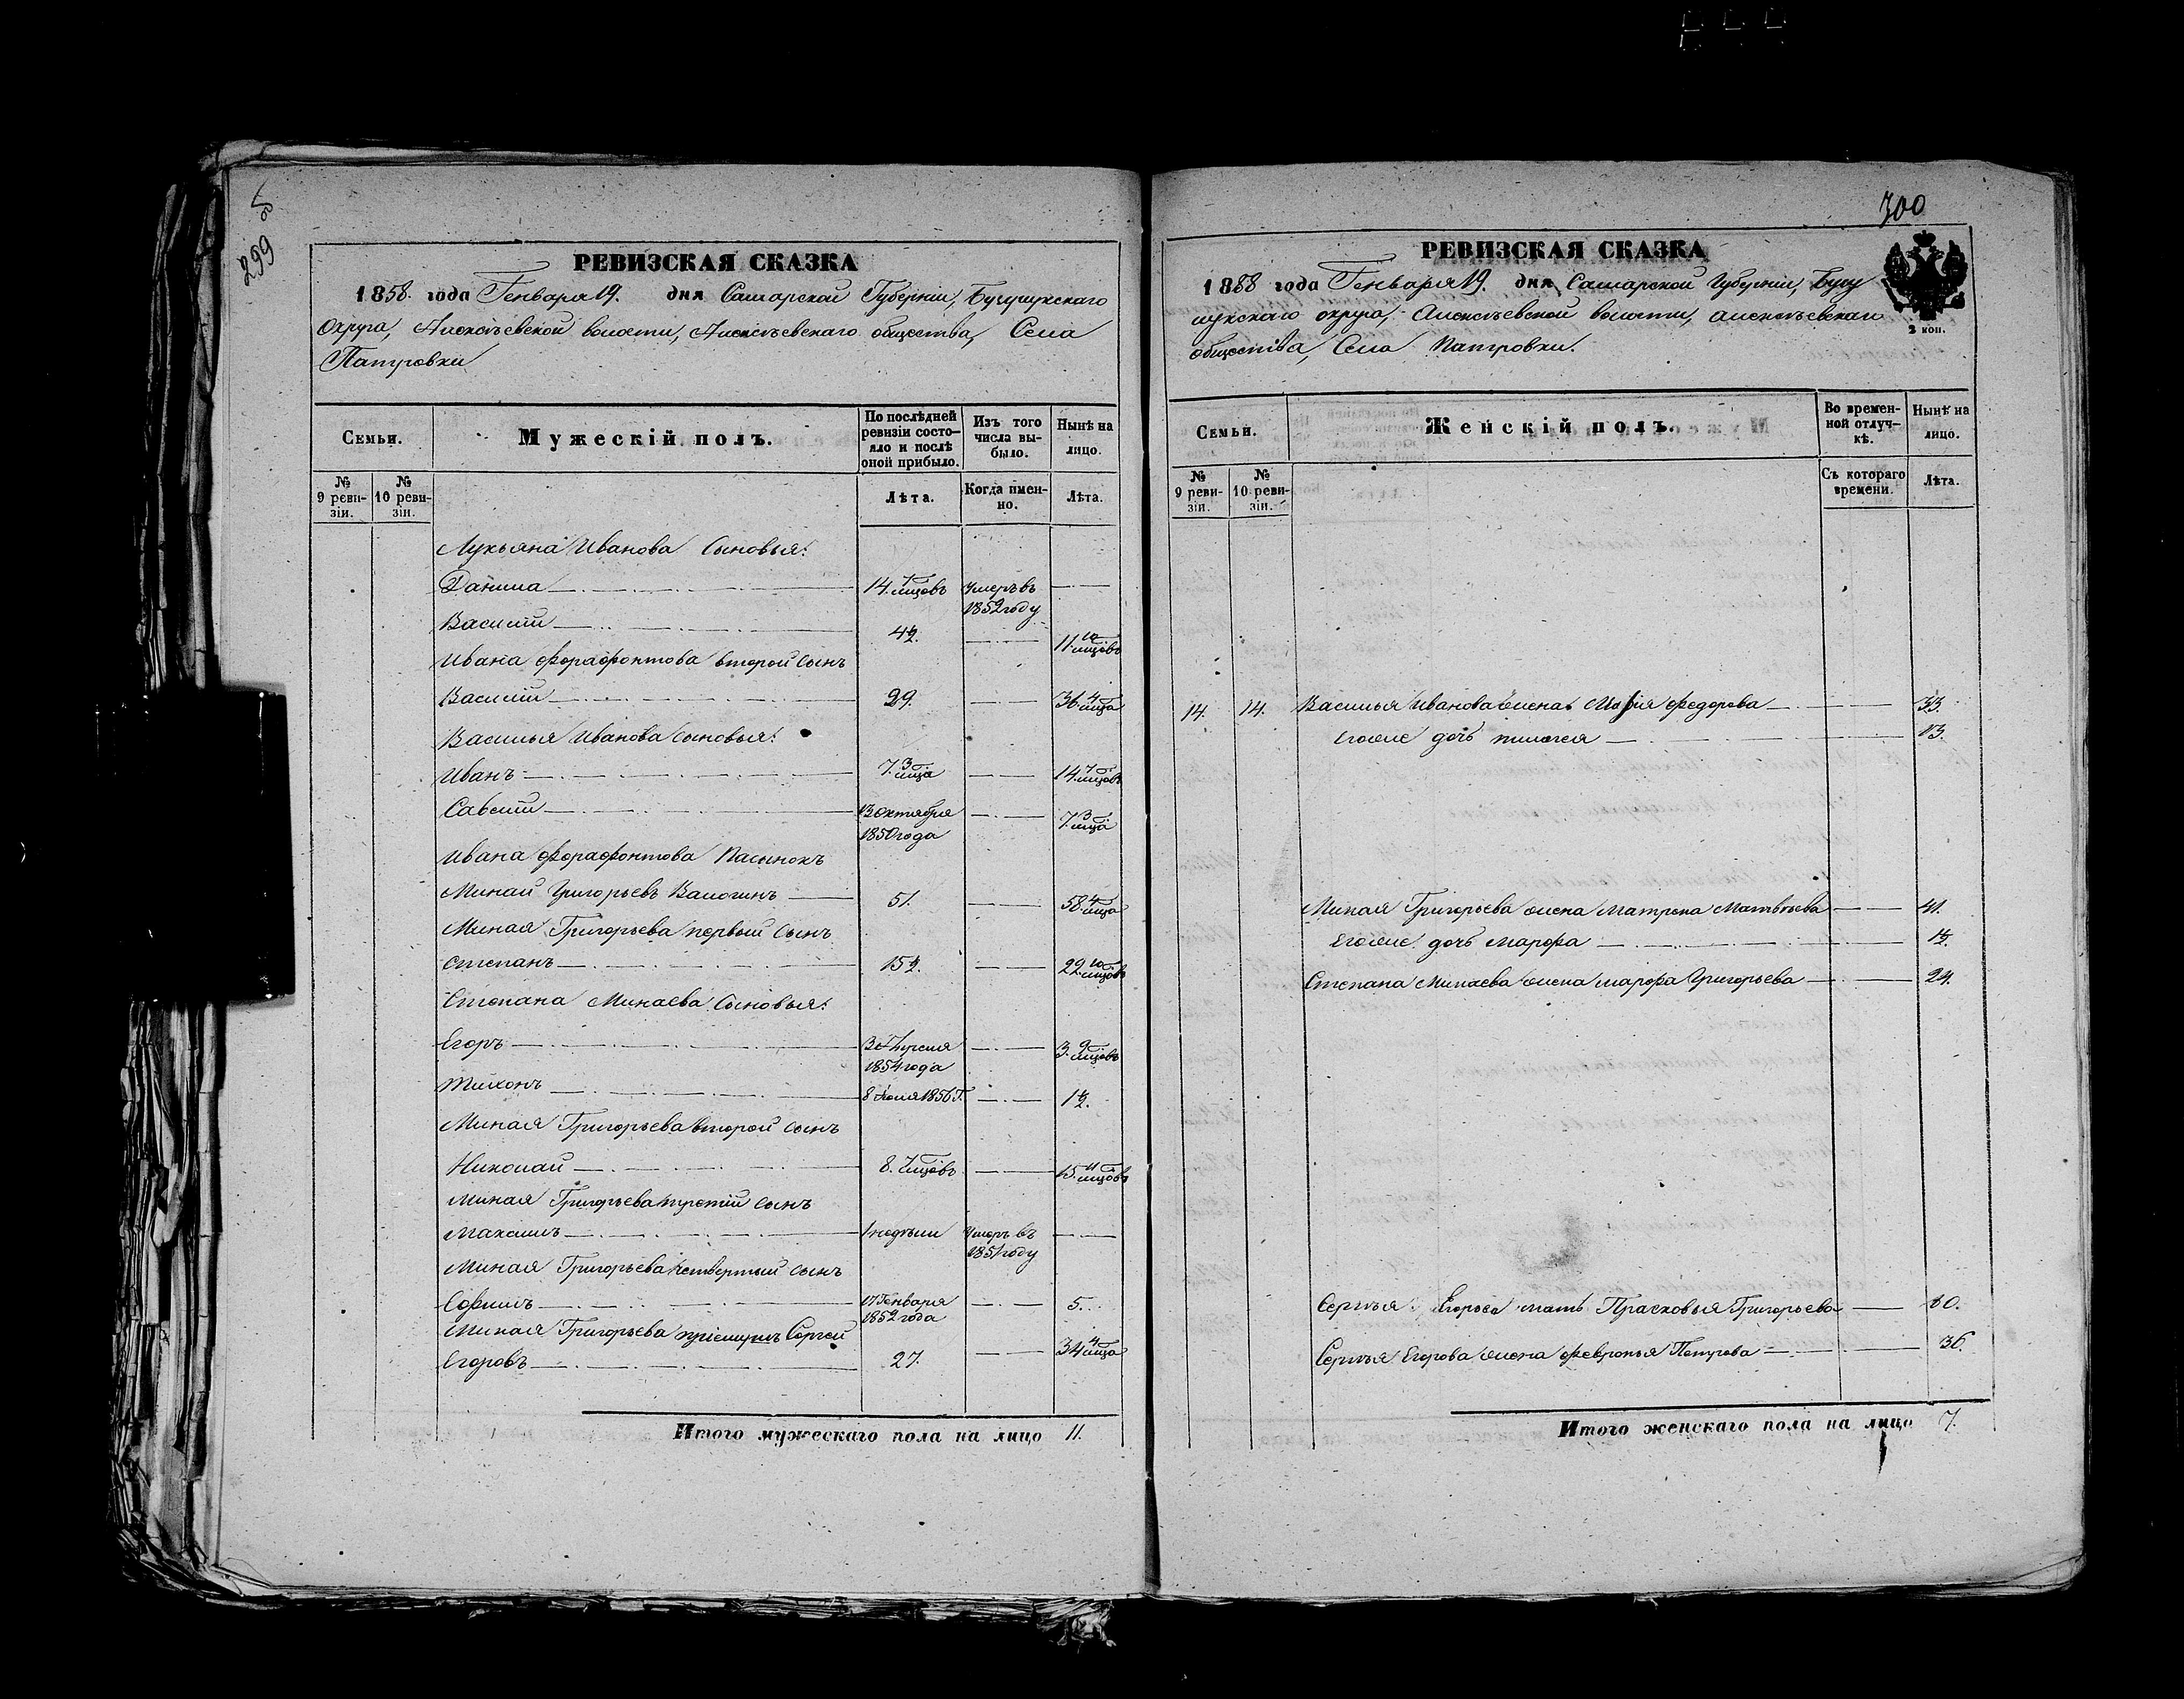 299
300
РЕВИЗСКАЯ СКАЗКА
1858. года Генваря 19. дня Самарской Губерніи, Бузулукскаго
Округа, Алексѣевской волости, Алексѣевскаго общества, Села
Патровки
Семьи.
Мужескій полъ.
По послѣдней ревизіи состо-
яло и послѣ оной прибыло.
Изъ того числа вы-
было.
Нынѣ на лицо.
№ 9 реви-
зіи.
№ 10 реви-
зіи.
Лѣта.
Когда имен-
но.
Лѣта.
Лукьяна Иванова Сыновья:
Данила 14. 7/мцовъ Умеръ въ 1852 году
Василій 4½. 11. 10/мцовъ
Ивана Форафонтова второй сынъ
Василій 29. 36. 4/мца
Василья Иванова сыновья:
Иванъ 7. 3/мца 14. 7/мцовъ
Савелій 13 Октября 1850 года 7. 3/мца
Ивана Форафонтова Пасынокъ
Минай Григорьевъ 51. 58. 4/мца
Миная Григорьева первый сынъ
Степанъ 15½. 22. 10/мцовъ
Степана Минаева Сыновья:
Егоръ 1854 года 3. 9/мцовъ
Тихонъ 8 Іюля 1856 Г. 1½.
Миная Григорьева второй сынъ
Николай 8. 7/мцовъ 15. 11/мцовъ
Миная Григорьева третій сынъ
Максимъ 1 недѣли Умеръ въ 1851 году
Миная Григорьева четвертый сынъ
17 Генваря 1852 года 5.
Миная Григорьева пріемышъ Сергей
Егоровъ 27. 34. 4/мца
Итого мужескаго пола на лицо 11.
РЕВИЗСКАЯ СКАЗКА
1858 года Генваря 19. дня Самарской Губерніи, Бузу
лукскаго округа, Алексѣевской волости, алексѣевскаго
общества, Села Патровки.
2 коп.
Семьи.
Женскій полъ.
Во времен-
ной отлуч-
кѣ.
Нынѣ на лицо.
№ 9 реви-
зіи.
№ 10 реви-
зіи.
Съ котораго времени.
Лѣта.
14. 14. Василья Иванова жена Марія Федорова 33.
Егоже дочь 13.
Миная Григорьева жена Матрена Матвѣева 41.
Егоже дочь Марфа 1½.
Степана Минаева жена Марфа Григорьева 24.
Сергѣя Егорова мать Прасковья Григорьева 60.
Сергѣя Егорова жена Февронья Петрова 36.
Итого женскаго пола на лицо 7.